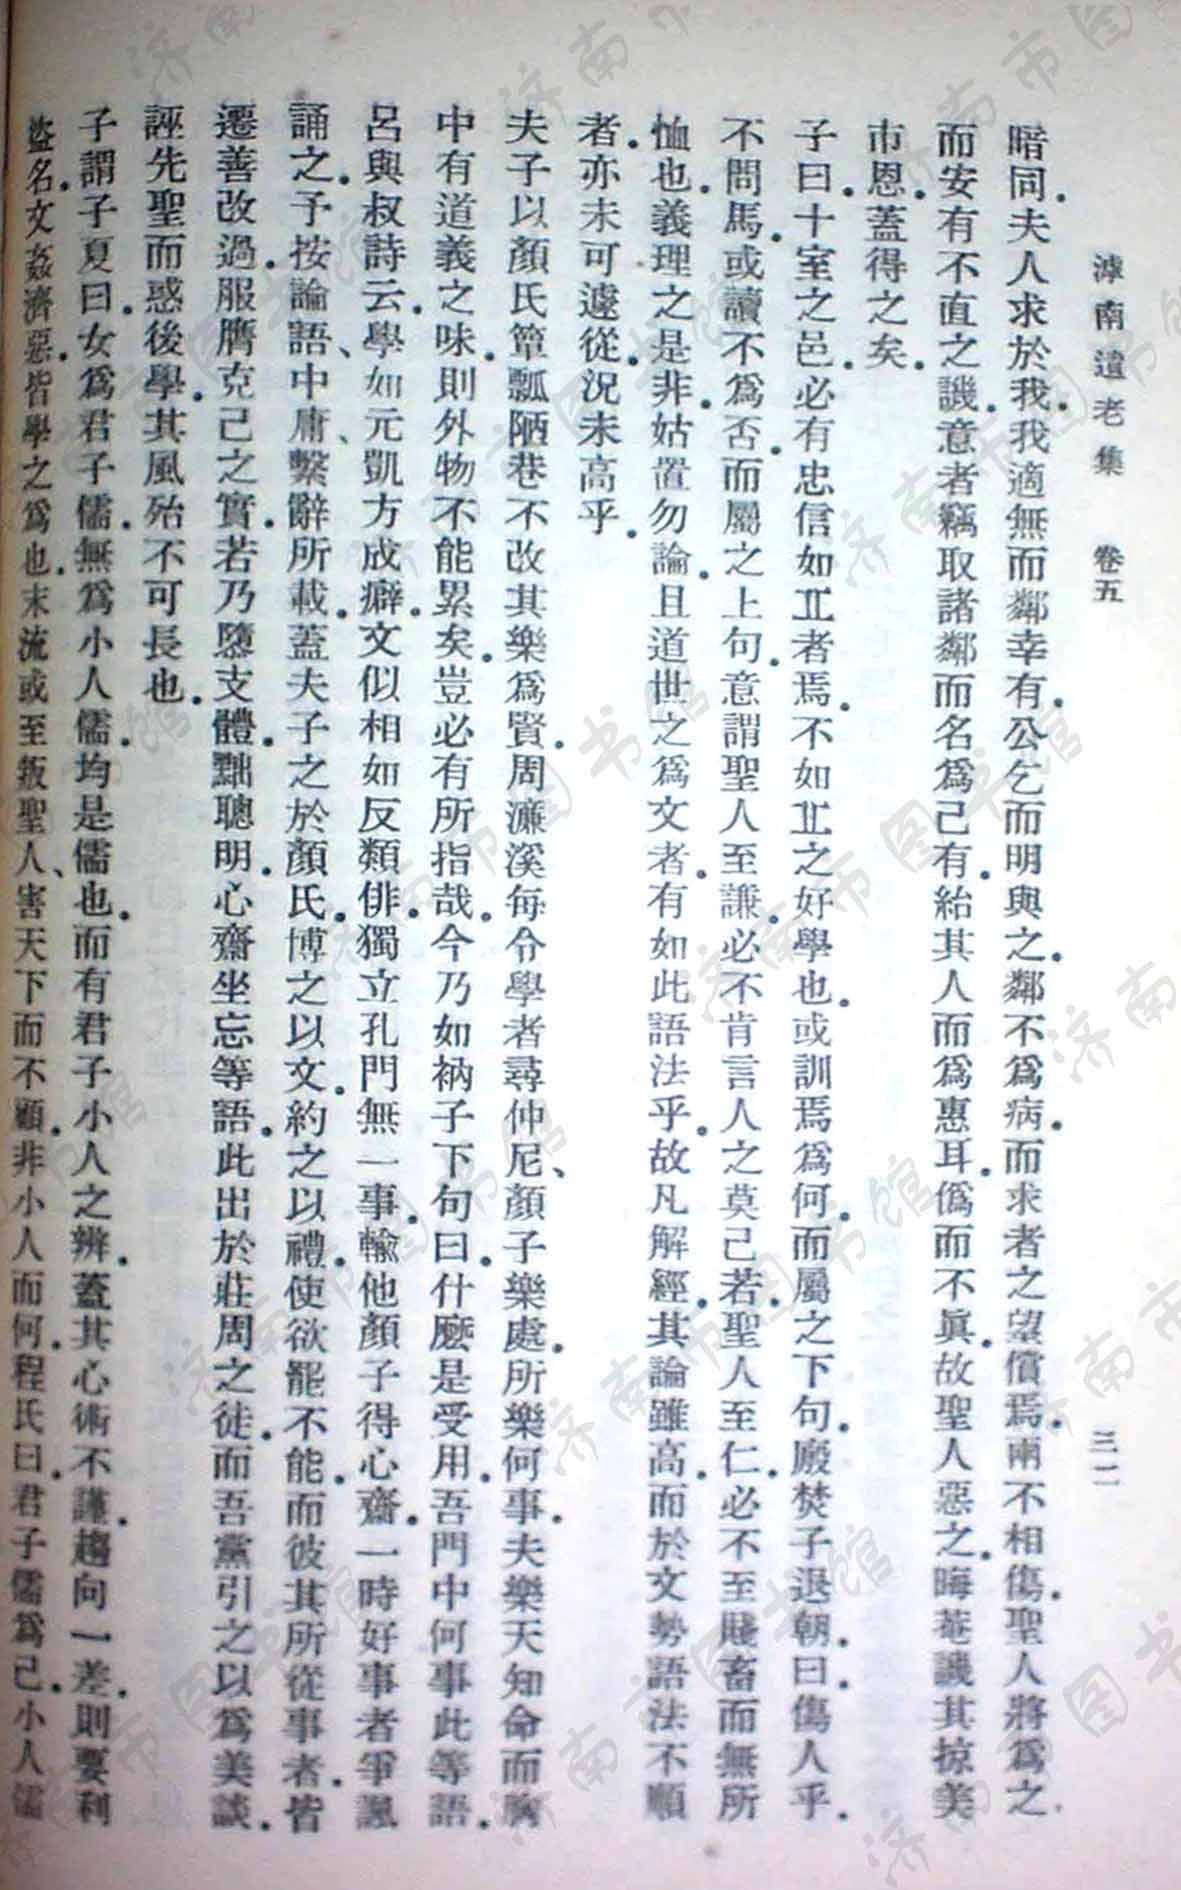 滹南遺老集 卷五 三二
暗同。夫人求於我。我適無而鄰幸有。公乞而明與之。鄰不爲病。而求者之望償焉。兩不相傷。聖人將爲之
而安有不直之譏。意者竊取諸鄰而名爲己有。紿其人而爲惠耳。僞而不眞。故聖人惡之。晦菴譏其掠美
市恩。蓋得之矣。
子曰。十室之邑。必有忠信如丘者焉。不如丘之好學也。或訓焉爲何。而屬之下句。廄焚。子退朝。曰。傷人乎。
不問馬。或讀不爲否。而屬之上句。意謂聖人至謙。必不肯言人之莫己若。聖人至仁。必不至賤畜而無所
恤也。義理之是非。姑置勿論。且道世之爲文者。有如此語法乎。故凡解經。其論雖高。而於文勢語法不順
者。亦未可遽從。況未高乎。
夫子以顏氏簞瓢陋巷不改其樂爲賢。周濂溪每令學者尋仲尼、顏子樂處。所樂何事。夫樂天知命而胸
中有道義之味。則外物不能累矣。豈必有所指哉。今乃如衲子下句曰。什麽是受用。吾門中何事此等語。
呂與叔詩云。學如元凱方成癖。文似相如反類俳。獨立孔門無一事。輸他顏子得心齋。一時好事者爭諷
誦之。予按論語、中庸、繫辭所載。蓋夫子之於顏氏。博之以文。約之以禮。使欲罷不能。而彼其所從事者。皆
遷善改過。服膺克己之實。若乃墮支體。黜聰明。心齋坐忘等語。此出於莊周之徒。而吾黨引之以爲美談。
誣先聖而惑後學。其風殆不可長也。
子謂子夏曰。女爲君子儒。無爲小人儒。均是儒也。而有君子小人之辨。蓋其心術不謹。趨向一差。則要利
盜名。文姦濟惡。皆學之爲也。末流或至叛聖人、害天下而不顧。非小人而何。程氏曰。君子儒爲己。小人儒